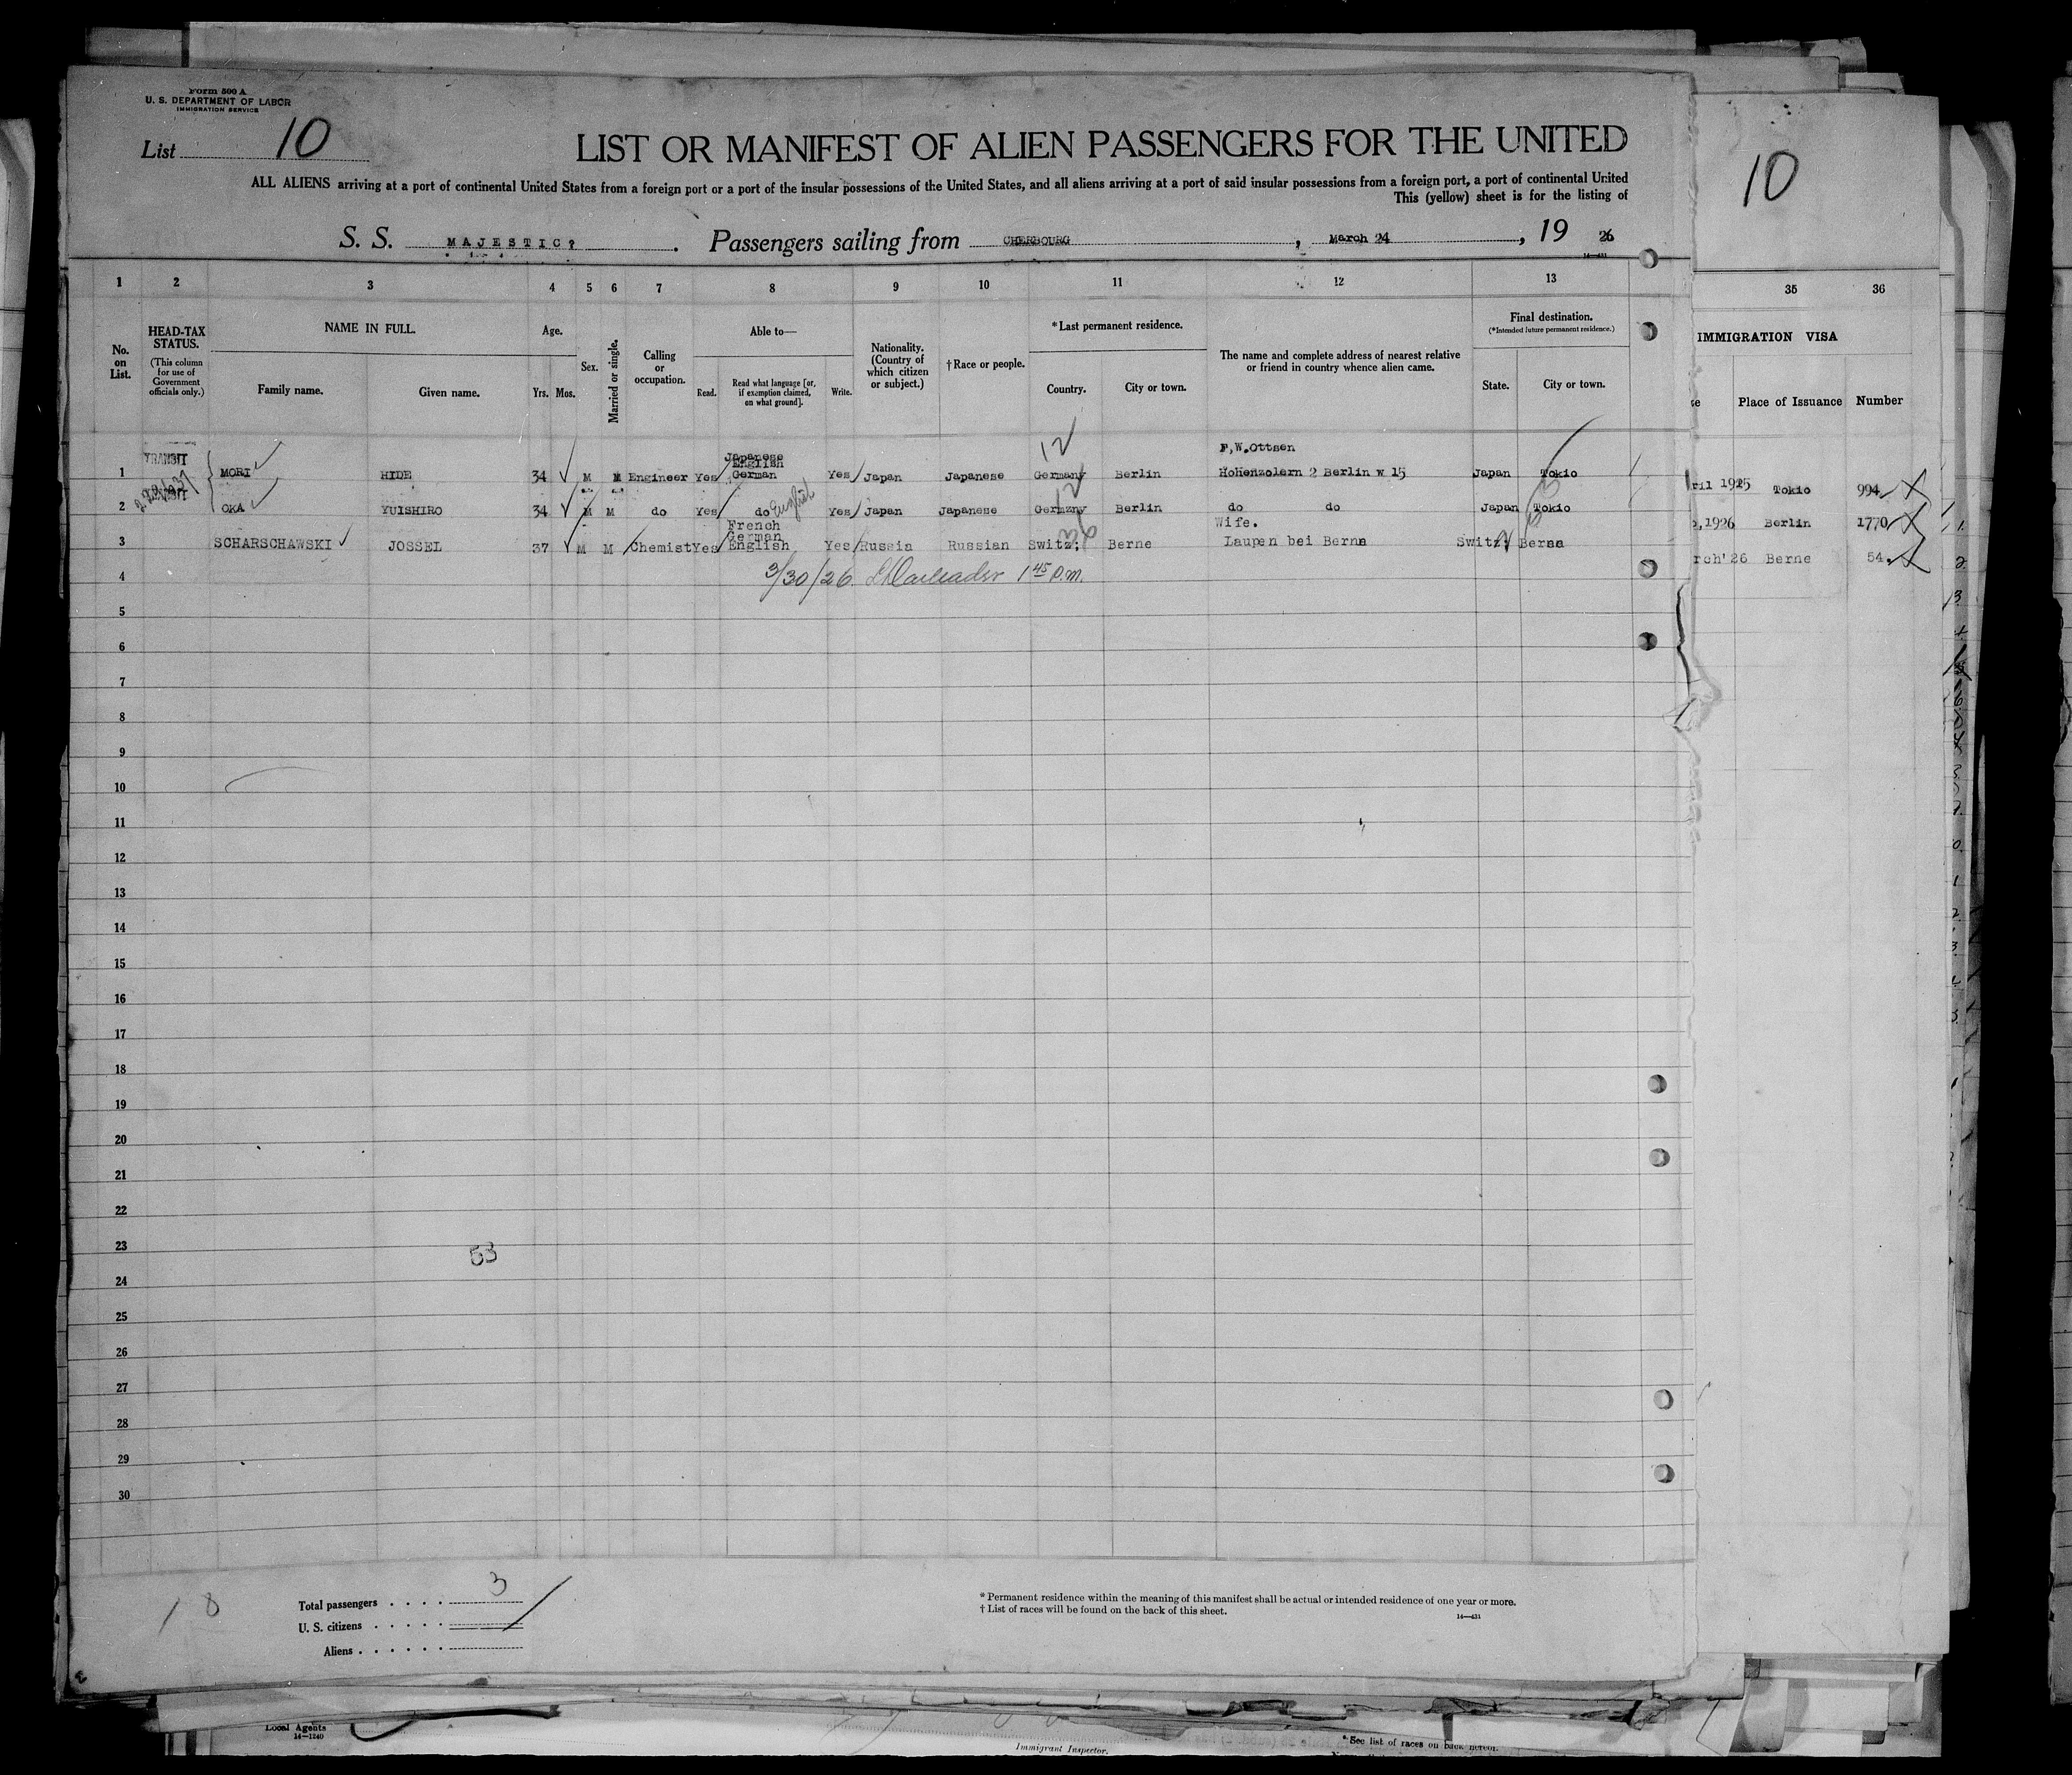 Form 500 A
U. S. DEPARTMENT OF LABOR
IMMIGRATION SERVICE
List 10
LIST OR MANIFEST OF ALIEN PASSENGERS FOR THE UNITED
ALL ALIENS arriving at a port of continental United States from a foreign port or a port of the insular possessions of the United States, and all aliens arriving at a port of said insular possessions from a foreign port, a port of continental United
This (yellow) sheet is for the listing of
S. S. MAJESTIC? . Passengers sailing from CHERBOURG , March 24 , 19 26
14—431
10
1 2 3 4 5 6 7 8 9 10 11 12 13 35 36
No. on List.
HEAD-TAX STATUS.
(This column for use of Government officials only.)
NAME IN FULL.
Family name. Given name.
Age.
Yrs. Mos.
Sex.
Married or single.
Calling or occupation.
Able to—
Read. Read what language [or, if exemption claimed, on what ground]. Write.
Nationality. (Country of which citizen or subject.)
†Race or people.
*Last permanent residence.
Country. City or town.
The name and complete address of nearest relative or friend in country whence alien came.
Final destination.
(*Intended future permanent residence.)
State. City or town.
IMMIGRATION VISA
Place of Issuance Number
12
F.W.Ottsen
TRANSIT
Japanese
English
1 MORI HIDE 34 M M Engineer Yes German Yes Japan Japanese Germany Berlin Hohenzolern 2 Berlin w 15 Japan Tokio
ril 1925 Tokio 994
12
2 OKA YUISHIRO 34 M M do Yes do English Yes Japan Japanese Germany Berlin do do Japan Tokio
,1926 Berlin 1770
French
German
Wife.
36
3 SCHARSCHAWSKI JOSSEL 37 M M Chemist Yes English Yes Russia Russian Switz; Berne Laupen bei Berne Switz; Berne
rch'26 Berne 54
4 3/30/26 1 45 P.m.
5
6
7
8
9
10
11
12
13
14
15
16
17
18
19
20
21
22
23
53
24
25
26
27
28
29
30
18
Total passengers . . . . 3
U. S. citizens . . . . .
Aliens . . . . . .
* Permanent residence within the meaning of this manifest shall be actual or intended residence of one year or more.
† List of races will be found on the back of this sheet.
14—431
Local Agents
14—1240
Immigrant Inspector.
* See list of races on back hereof.